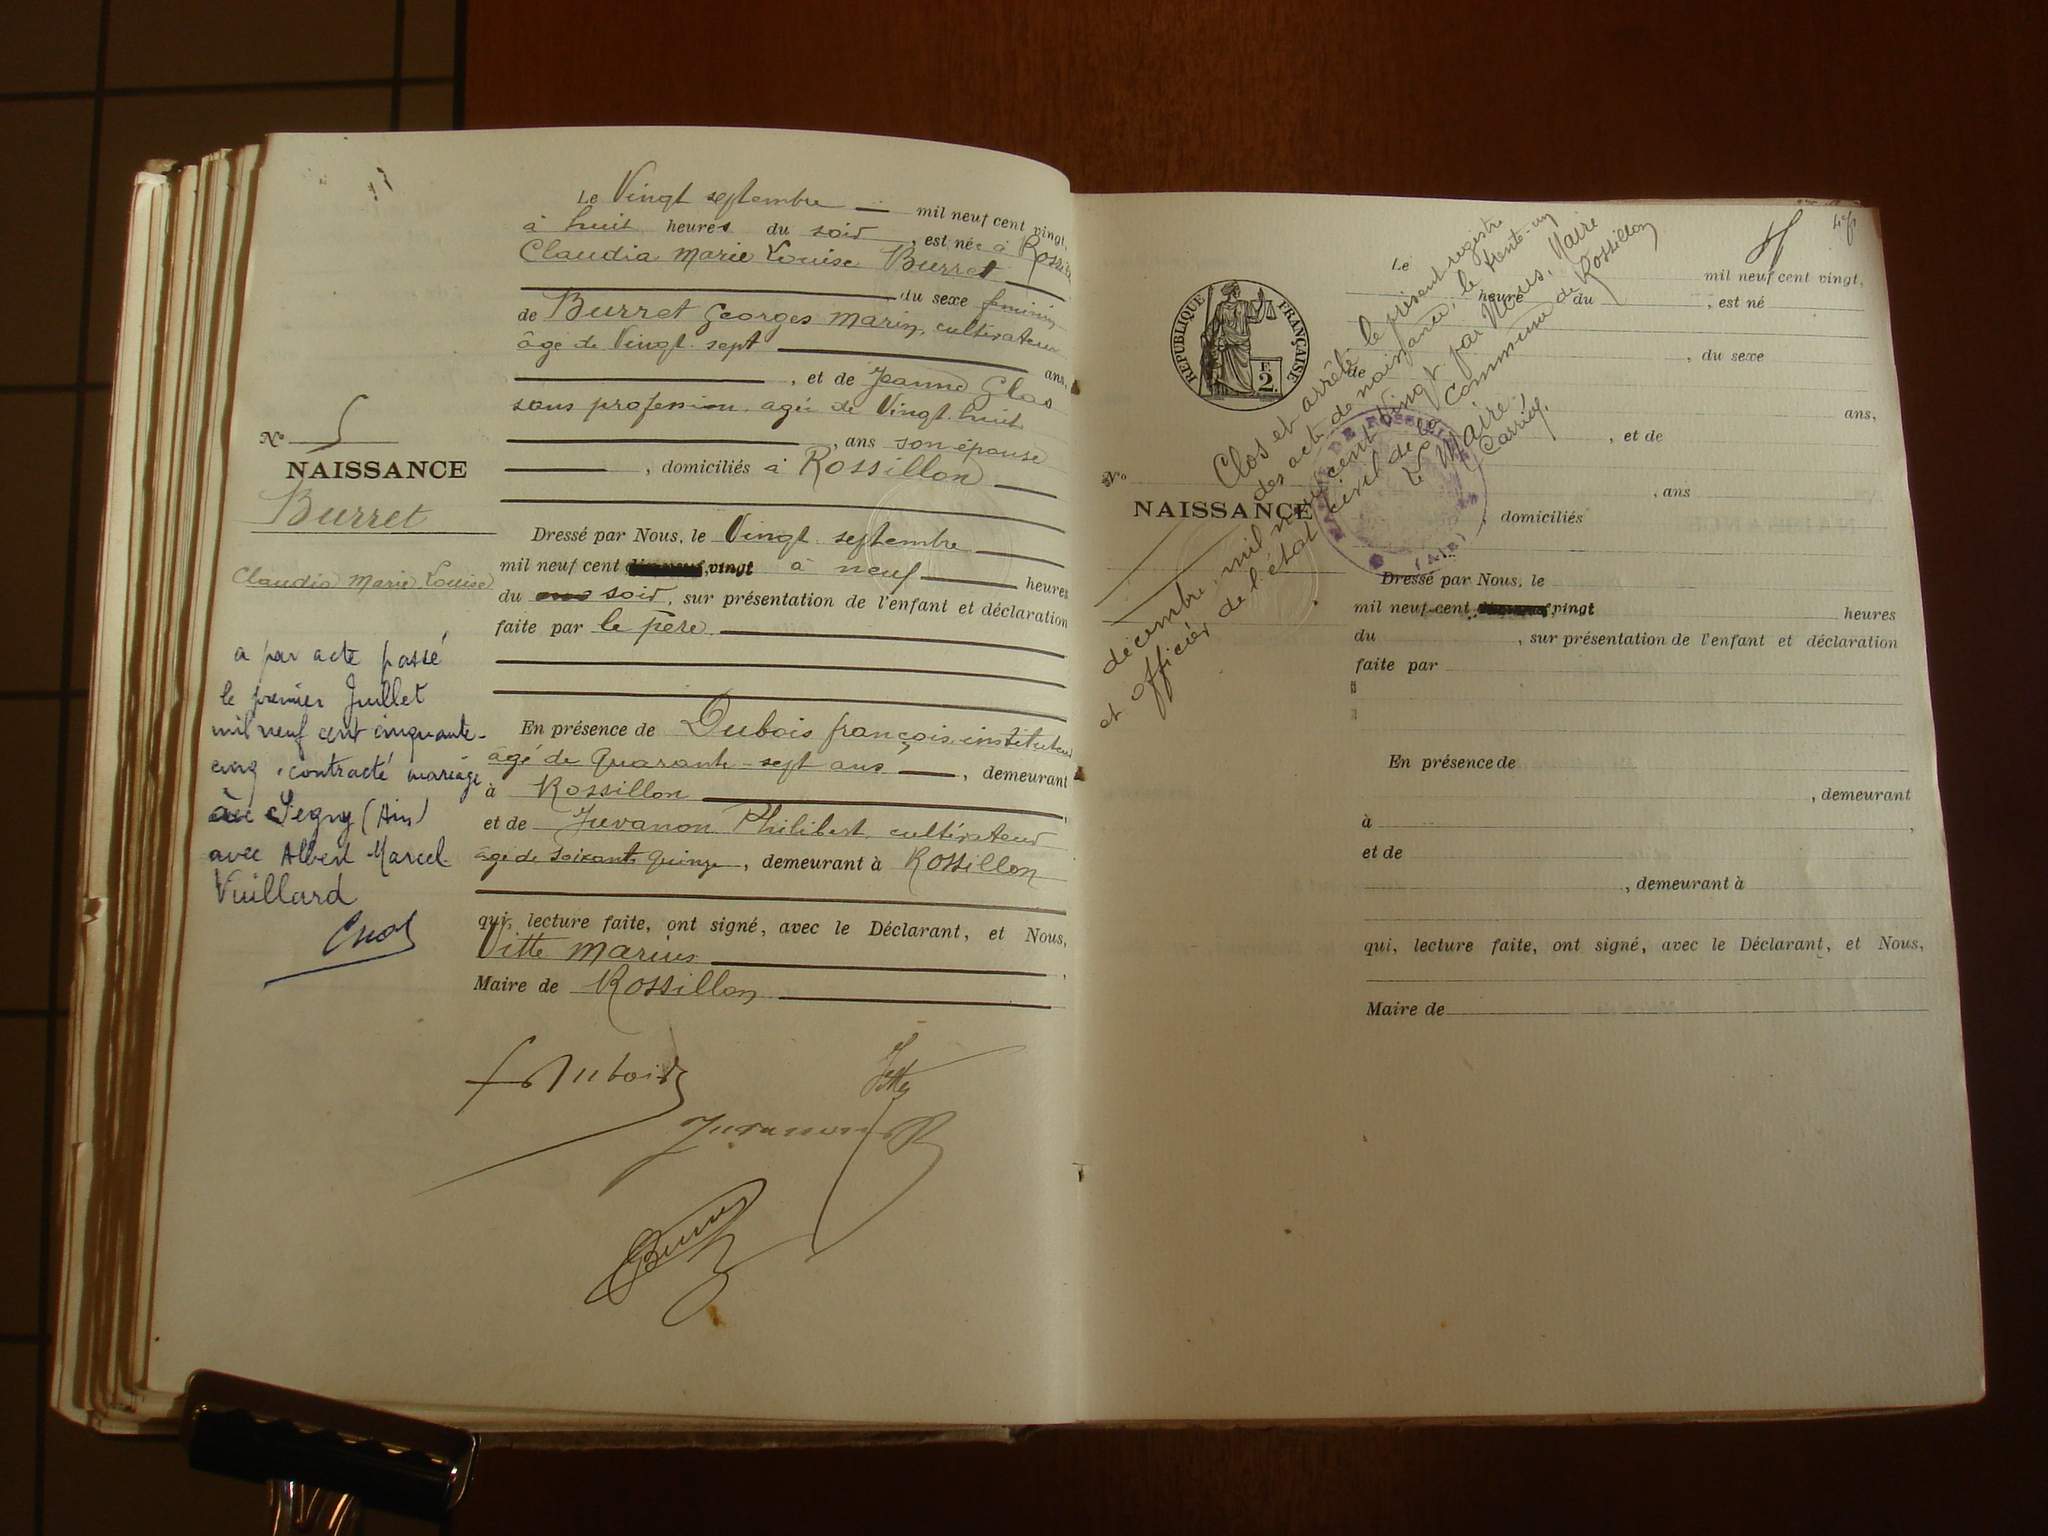 Le Vingt septembre mil neuf cent vingt,
à huit heures du soir, est née à
Claudia Marie Louise Burret
du sexe féminin
de Burret Georges Marin, cultivateur
âgé de Vingt-sept ans,
, et de Jeanne Clos
sans profession, agée de Vingt huit
, ans son épouse
, domiciliés à Rossillon
Dressé par Nous, le Vingt septembre
mil neuf cent vingt à neuf heures
du soir, sur présentation de l'enfant et déclaration
faite par le père
En présence de Dubois françois instituteur
âgé de Quarante-sept ans, demeurant
à Rossillon
et de Juvanon Philibert cultivateur
âgé de Soixante Quinze, demeurant à Rossillon
qui, lecture faite, ont signé, avec le Déclarant, et Nous,
Vitte Marius
Maire de Rossillon
f Dubois
Juvanon
Burret
N° 5
NAISSANCE
Burret
Claudia Marie Louise
a par acte passé
le premier Juillet
mil neuf cent cinquante-
cinq contracté mariage
à Segny (Ain)
avec Albert Marcel
Vuillard
RÉPUBLIQUE FRANÇAISE
2F.
Le mil neuf cent vingt,
heure du , est né
, du sexe
de
ans,
, et de
, ans
N°
NAISSANCE
, domiciliés
Dressé par Nous, le
mil neuf cent vingt heures
du , sur présentation de l'enfant et déclaration
faite par
En présence de
, demeurant
à
et de
, demeurant à
qui, lecture faite, ont signé, avec le Déclarant, et Nous,
Maire de
Clos et arrêté le présent registre
des actes de naissance, le trente-un
décembre mil neuf cent Vingt par Nous, Maire
et officier de l'état civil de la commune de Rossillon
Le Maire,
MAIRIE DE ROSSILLON
(AIN)